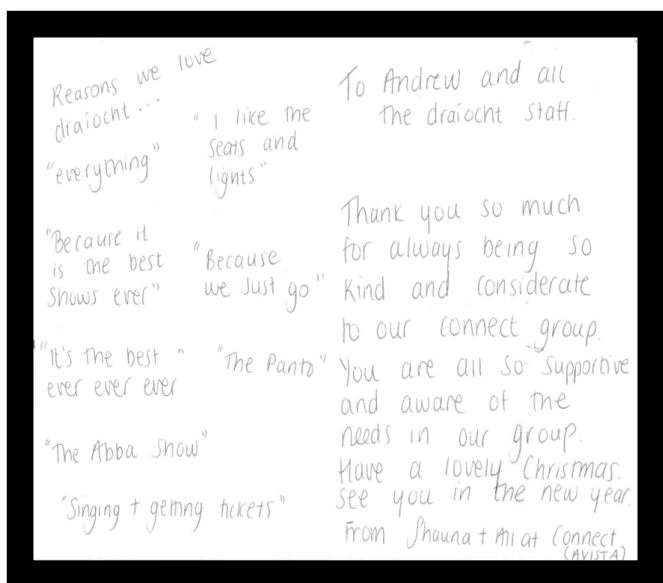 Reasons we love
draíocht...
"everything"
"I like the
seats and
lights"
"Because it
is the best
shows ever"
"Because
we Just go"
"It's the best "
ever ever ever
"The Panto"
"The Abba Show"
"Singing + getting tickets"
To Andrew and all
the draíocht staff.
Thank you so much
for always being so
kind and considerate
to our connect group.
You are all so supportive
and aware of the
needs in our group.
Have a lovely Christmas.
See you in the new year.
From Shauna + All at Connect
(AVISTA)